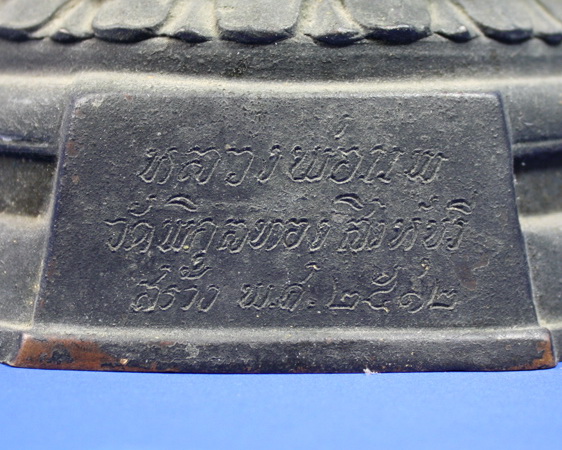 หลวงพ่อแพ
วัดพิกุลทอง สิงห์บุรี
สร้าง พ.ศ. ๒๕๑๒